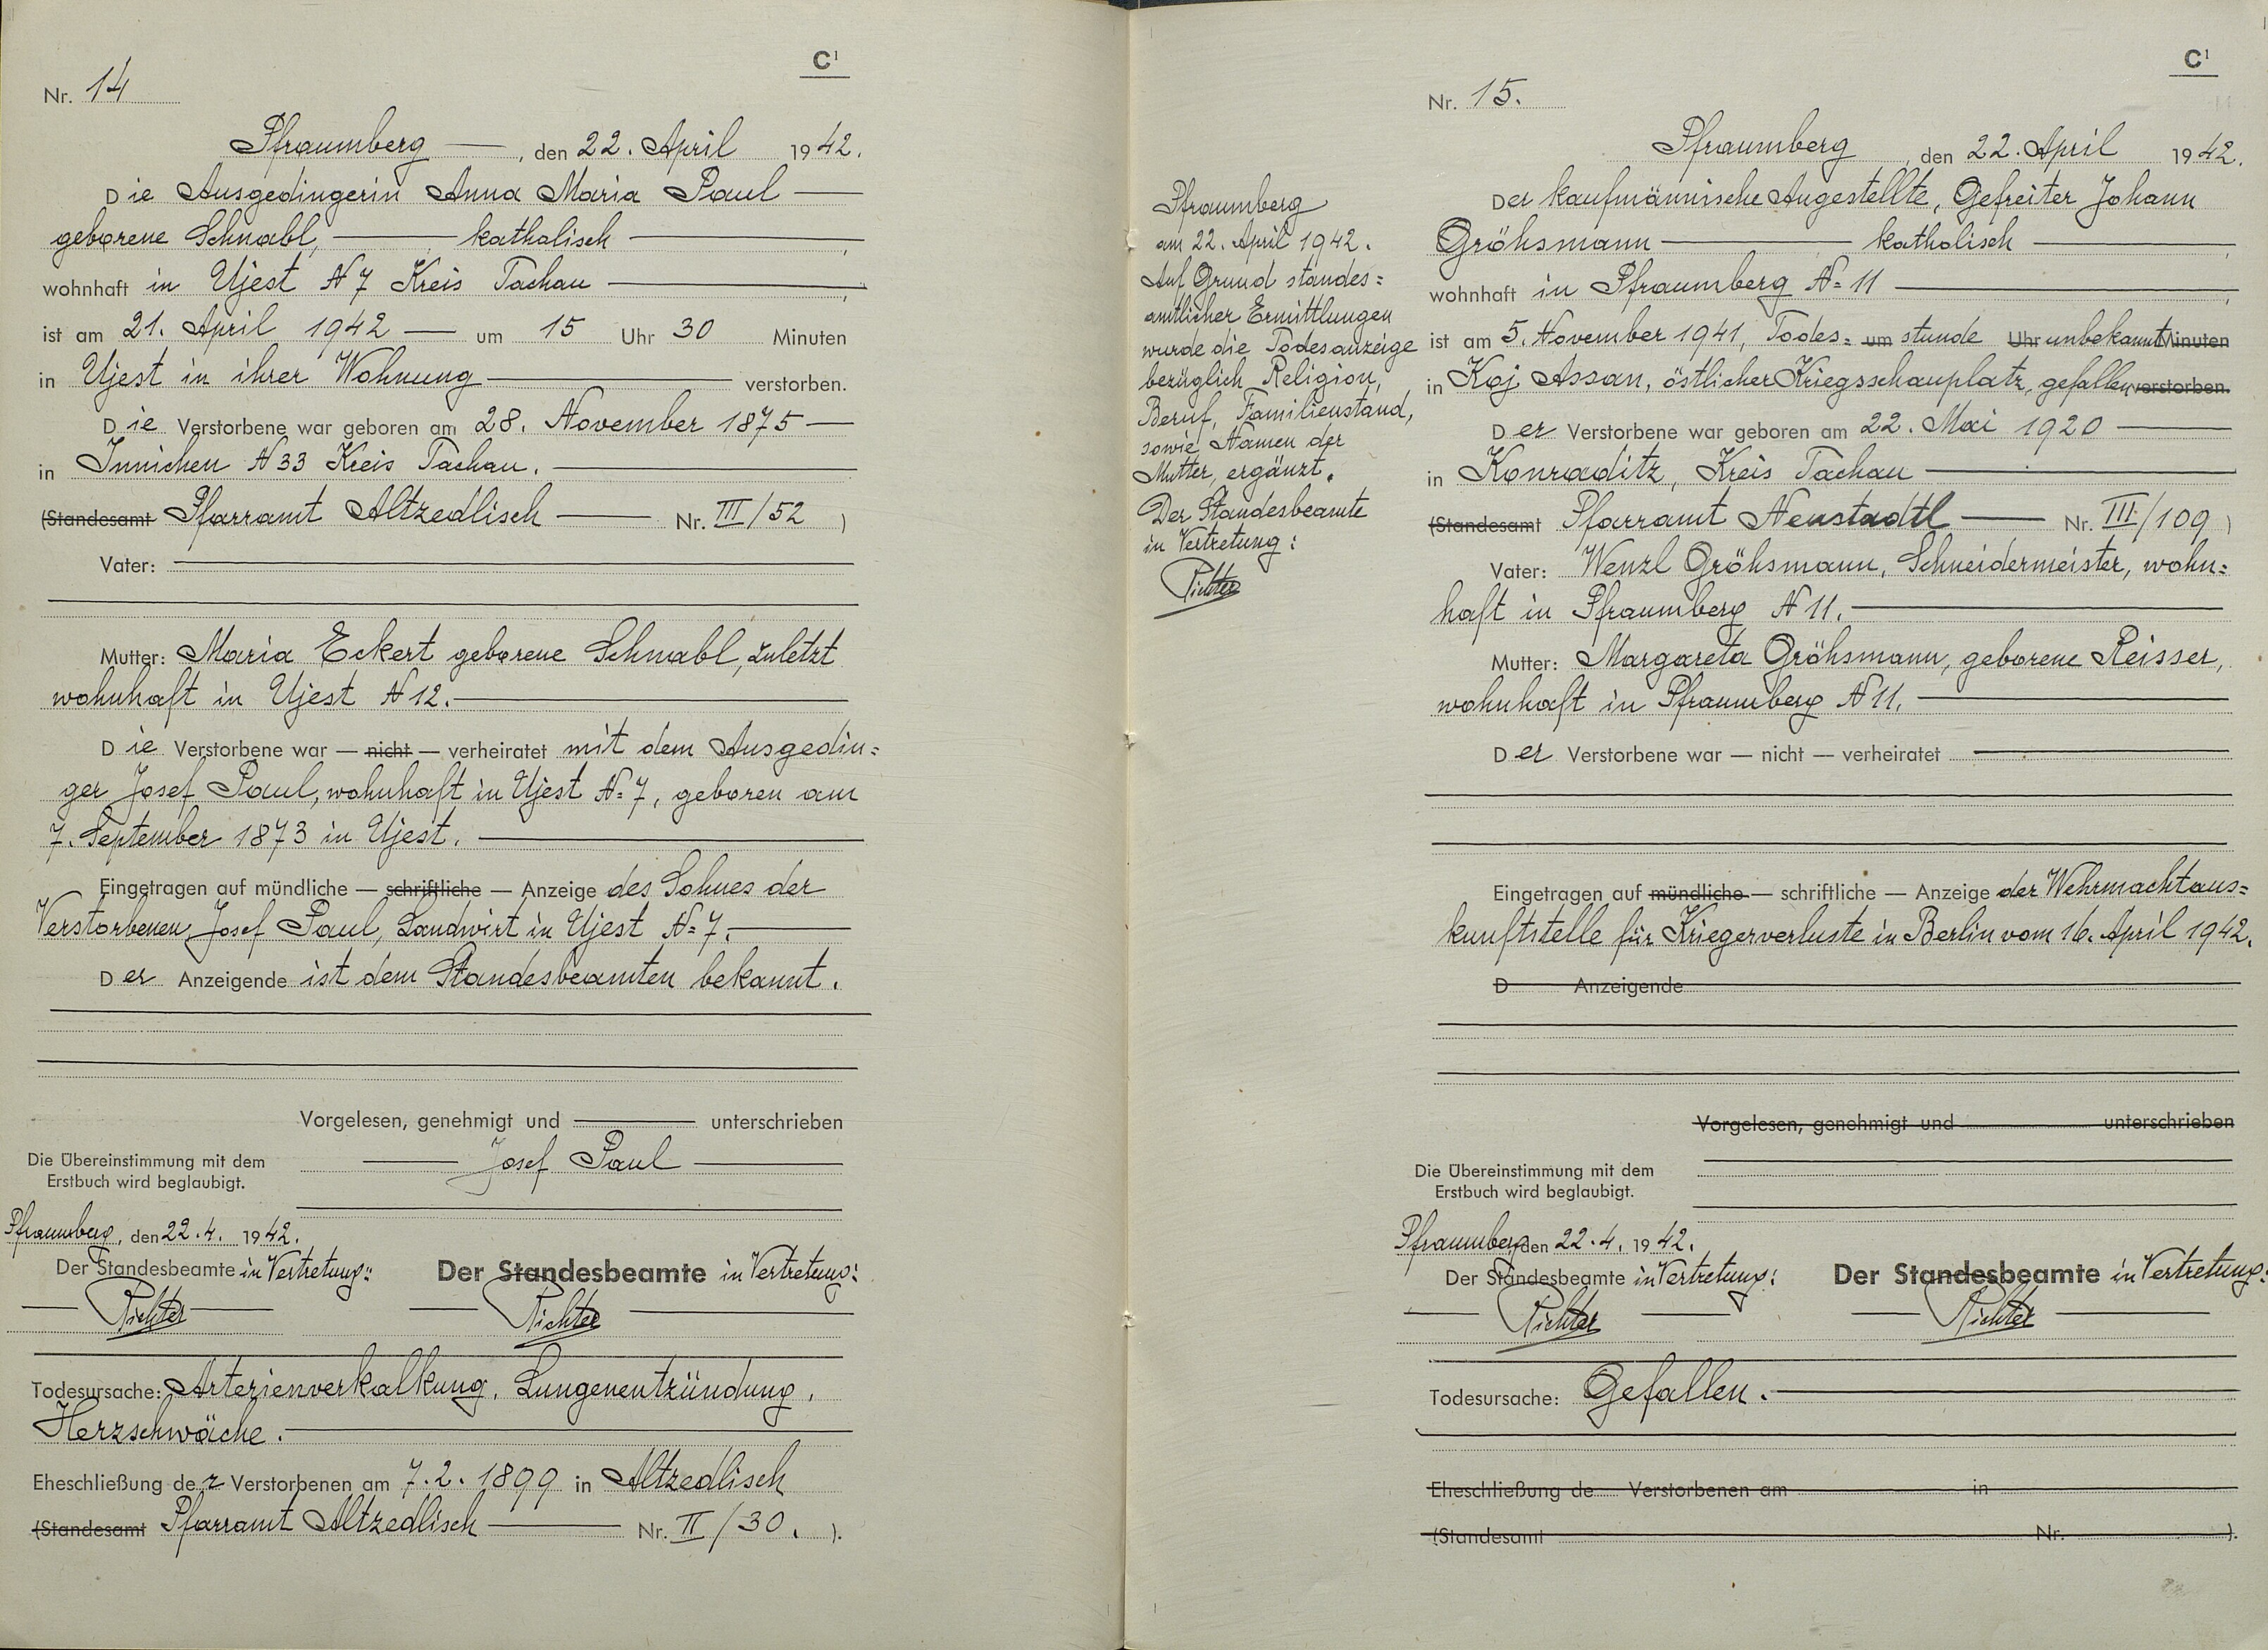 C¹
Nr. 14
Pfraumberg —, den 22. April 1942.
Die Ausgedingerin Anna Maria Paul —
geborene Schnabl, — katholisch —,
wohnhaft in Ujest N 7 Kreis Tachau —,
ist am 21. April 1942 — um 15 Uhr 30 Minuten
in Ujest in ihrer Wohnung — verstorben.
Die Verstorbene war geboren am 28. November 1875 —
in Innichen N 33 Kreis Tachau. —
(Standesamt Pfarramt Altzedlisch — Nr. III/52 )
Vater: —
Mutter: Maria Eckert geborene Schnabl, zuletzt
wohnhaft in Ujest N 12. —
Die Verstorbene war — nicht — verheiratet mit dem Ausgedin=
ger Josef Paul, wohnhaft in Ujest N= 7, geboren am
7. September 1873 in Ujest. —
Eingetragen auf mündliche — schriftliche — Anzeige des Sohnes der
Verstorbenen, Josef Paul, Landwirt in Ujest N= 7. —
Der Anzeigende ist dem Standesbeamten bekannt.
Vorgelesen, genehmigt und — unterschrieben
— Josef Paul —
Die Übereinstimmung mit dem
Erstbuch wird beglaubigt.
Pfraumberg, den 22.4. 1942.
Der Standesbeamte in Vertretung:
Richter
Der Standesbeamte in Vertretung:
Richter
Todesursache: Arterienverkalkung, Lungenentzündung,
Herzschwäche. —
Eheschließung der Verstorbenen am 7.2.1899 in Altzedlisch
(Standesamt Pfarramt Altzedlisch — Nr. II/30. ).
C¹
Nr. 15.
Pfraumberg, den 22. April 1942.
Der kaufmännische Angestellte, Gefreiter Johann
Gröhsmann — katholisch —,
wohnhaft in Pfraumberg N= 11 —,
ist am 5. November 1941, Todes= um stunde Uhr unbekannt Minuten
in Koj Assan, östlicher Kriegsschauplatz, gefallen verstorben.
Der Verstorbene war geboren am 22. Mai 1920 —
in Konraditz, Kreis Tachau —
(Standesamt Pfarramt Neustadtl — Nr. III/109 )
Vater: Wenzl Gröhsmann, Schneidermeister, wohn=
haft in Pfraumberg N 11. —
Mutter: Margareta Gröhsmann, geborene Reisser,
wohnhaft in Pfraumberg N 11. —
Der Verstorbene war — nicht — verheiratet —
Eingetragen auf mündliche — schriftliche — Anzeige der Wehrmachtaus=
kunftstelle für Kriegerverluste in Berlin vom 16. April 1942.
D Anzeigende
Vorgelesen, genehmigt und unterschrieben
Die Übereinstimmung mit dem
Erstbuch wird beglaubigt.
Pfraumberg, den 22.4. 1942.
Der Standesbeamte in Vertretung:
Richter
Der Standesbeamte in Vertretung:
Richter
Todesursache: Gefallen. —
Eheschließung de Verstorbenen am in
(Standesamt Nr. ).
Pfraumberg
am 22. April 1942.
Auf Grund standes=
amtlicher Ermittlungen
wurde die Todesanzeige
bezüglich Religion,
Beruf, Familienstand,
sowie Namen der
Mutter, ergänzt.
Der Standesbeamte
in Vertretung:
Richter